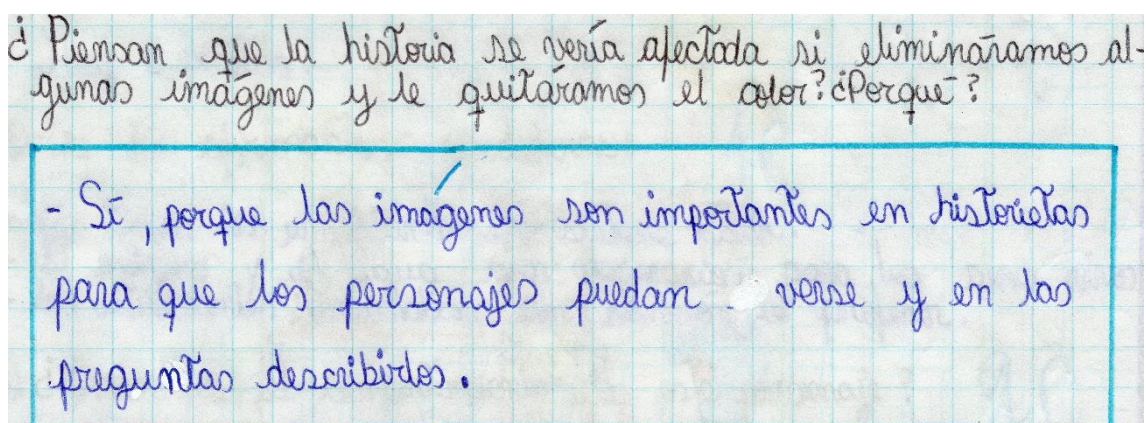 ¿Piensan que la historia se vería afectada si elimináramos al-
gunas imágenes y le quitáramos el color? ¿Porqué?
- Sí, porque las imágenes son importantes en historietas
para que los personajes puedan verse y en las
preguntas describirlos.